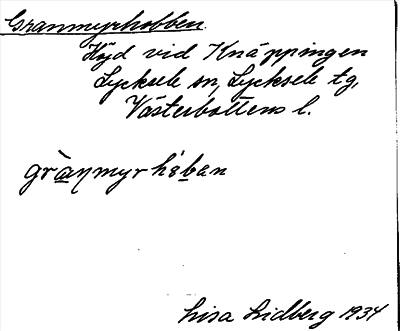 Granmyrhobben.
Höjd vid Knäppingen
Lycksele sn, Lycksele tg,
Västerbottens l.
gràn̥myrhɵ́ban
Lisa Lidberg 1934